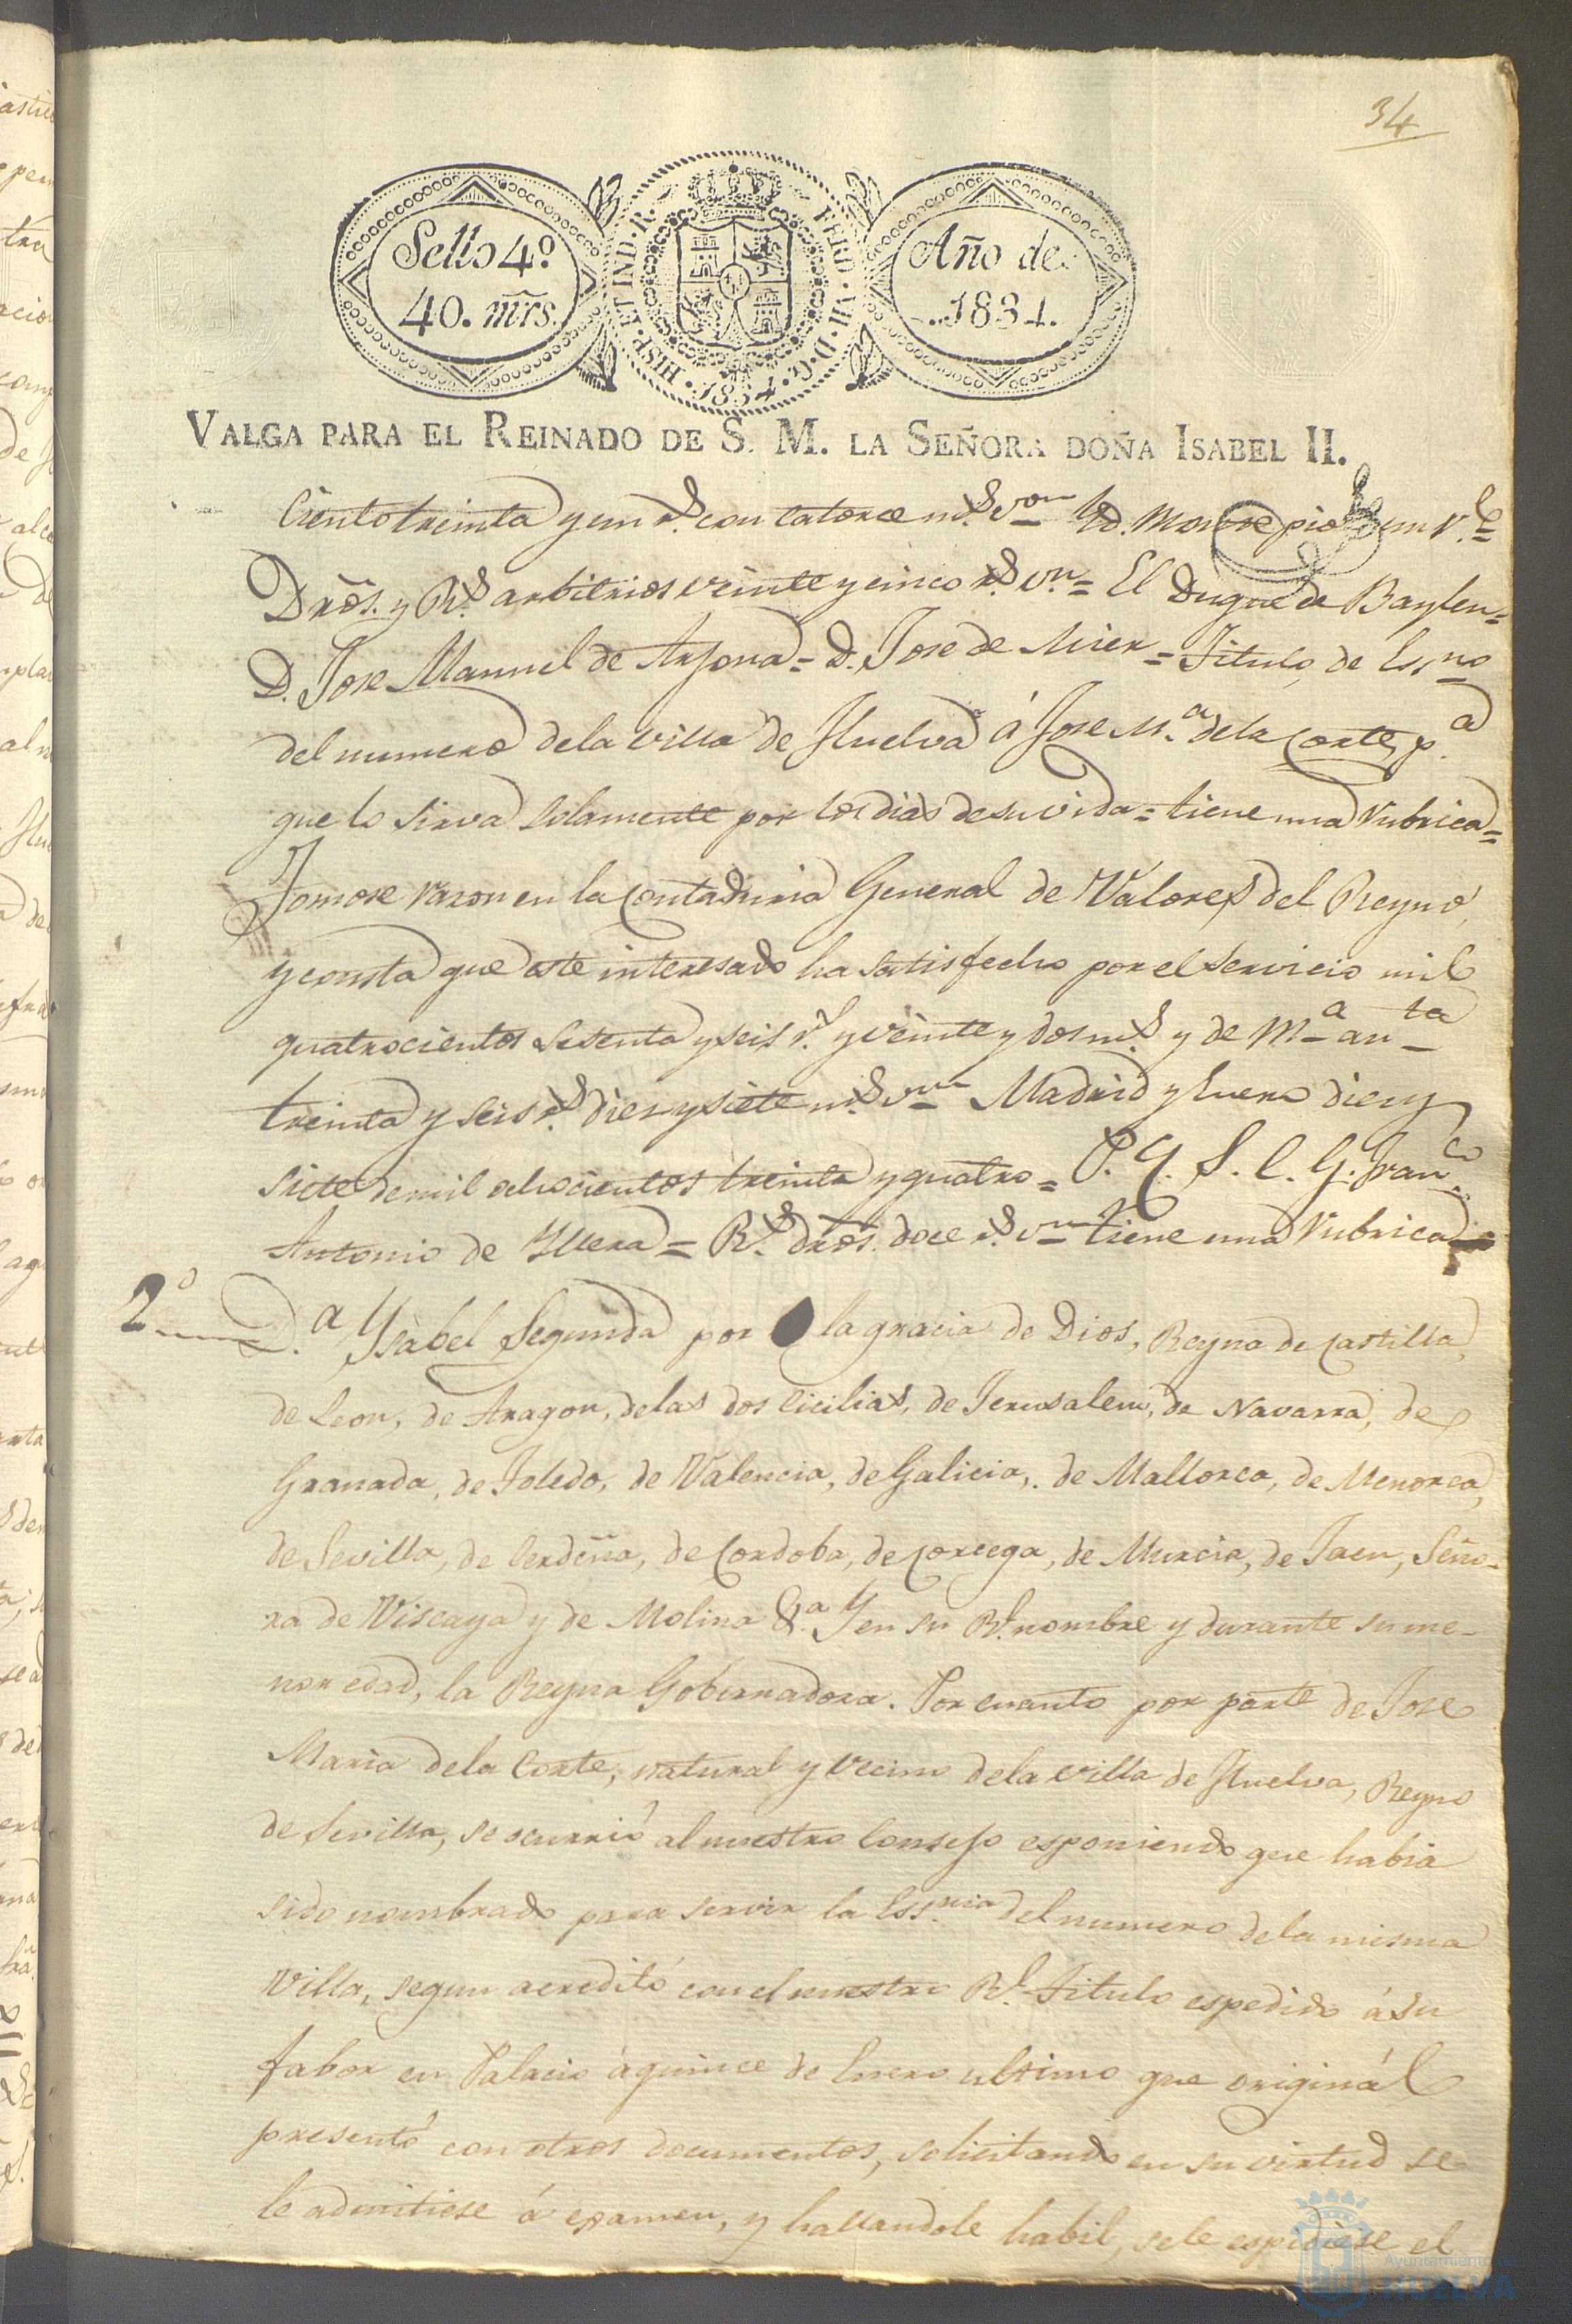 34
Sello 4.º
40. mrs.
HISP. ET IND. R.
FERD. VII. D. G.
1834
Año de
1834.
VALGA PARA EL REINADO DE S. M. LA SEÑORA DOÑA ISABEL II.
Ciento treinta y un r.s con catorce m.s von D. Monte pio un r.l =
Dros. y R.s arbitrios veinte y cinco r.s vn = El Duque de Baylen =
D. Jose Manuel de Arjona = D. Jose de Mier = Titulo de Essno
del numero dela villa de Huelva á Jose M.a dela Corte, p.a
que lo sirva solamente por los dias de su vida = tiene una rubrica =
Tomose razon en la Contaduria General de Valores del Reyno,
y consta que este interesado ha satisfecho por el servicio mil
quatrocientos sesenta y seis r.s y veinte y dos m.s y de Ma anta
treinta y seis r.s diez y siete m.s von Madrid y Enero diez y
siete de mil ochocientos treinta y quatro = P. Y. S. C. G. Franco
Antonio de Yllera = R.s dros. doce r.s vn tiene una rubrica =
2.º D.a Ysabel Segunda por la gracia de Dios, Reyna de Castilla,
de Leon, de Aragon, delas dos Cicilias, de Jerusalem, de Navarra, de
Granada, de Toledo, de Valencia, de Galicia, de Mallorca, de Menorca,
de Sevilla, de Cerdeña, de Cordoba, de Corcega, de Murcia, de Jaen, Seño-
ra de Viscaya y de Molina &.a Y en su R.l nombre y durante su me-
nor edad, la Reyna Gobernadora. Por cuanto por parte de Jose
Maria dela Corte, natural y vecino dela villa de Huelva, Reyno
de Sevilla, se ocurrió al nuestro Consejo esponiendo que habia
sido nombrado para servir la Essnia del numero dela misma
Villa, segun acreditó con el nuestro R.l Titulo espedido á su
fabor en Palacio á quince de Enero ultimo que originál
presentó con otros documentos, solicitando en su virtud se
le admitiese á examen, y hallandole habil, sele espidiese el
Ayuntamiento de
HUELVA